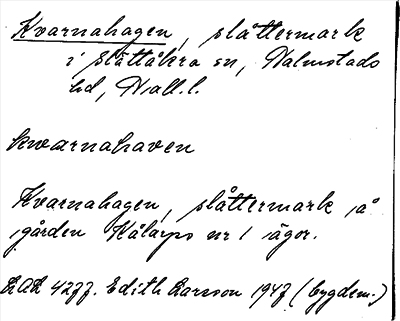 Kvarnahagen, slåttermark
i Slättåkra sn, Halmstads
hd, Hall. l.
kwarnahaven
Kvarnahagen, slåttermark på
gården Kålarps nr 1 ägor.
Edith Larsson 1947 (bygdem.)